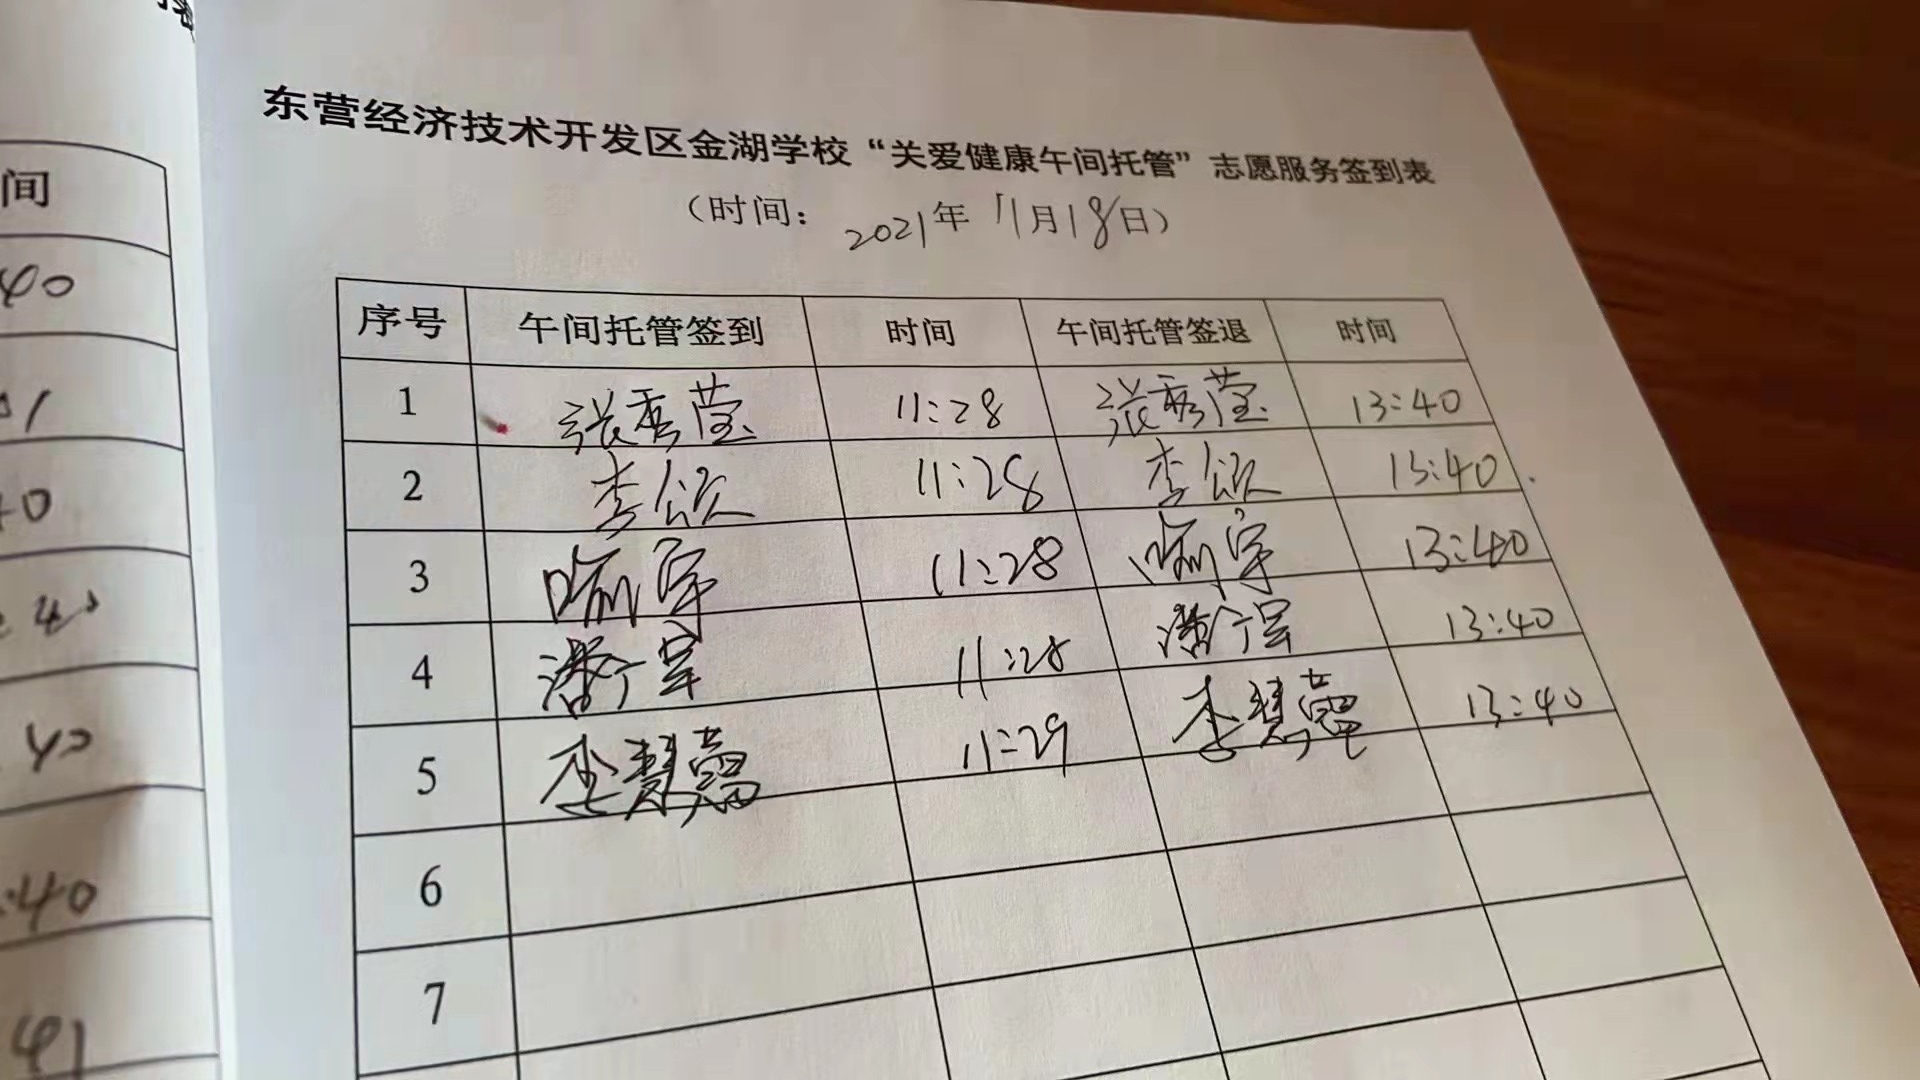 间
40
01
40
40
40
:40
41
东营经济技术开发区金湖学校“关爱健康午间托管”志愿服务签到表
（时间： 2021年 11月18日）
序号 午间托管签到 时间 午间托管签退 时间
1 张秀莹 11:28 张秀莹 13:40
2 李颂 11:28 李颂 13:40
3 喻宇 11:28 喻宇 13:40
4 潘宁军 11:28 潘宁军 13:40
5 李慧蕾 11:29 李慧蕾 13:40
6
7